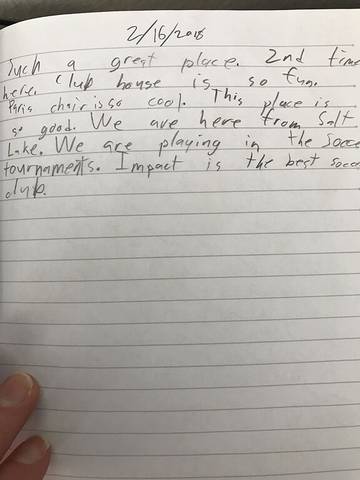 2/16/2018
Such a great place. 2nd time
here. Club house is so fun.
Paris chair is so cool. This place is
so good. We are here from Salt
Lake. We are playing in the Socce
tournaments. Impact is the best socce
club.